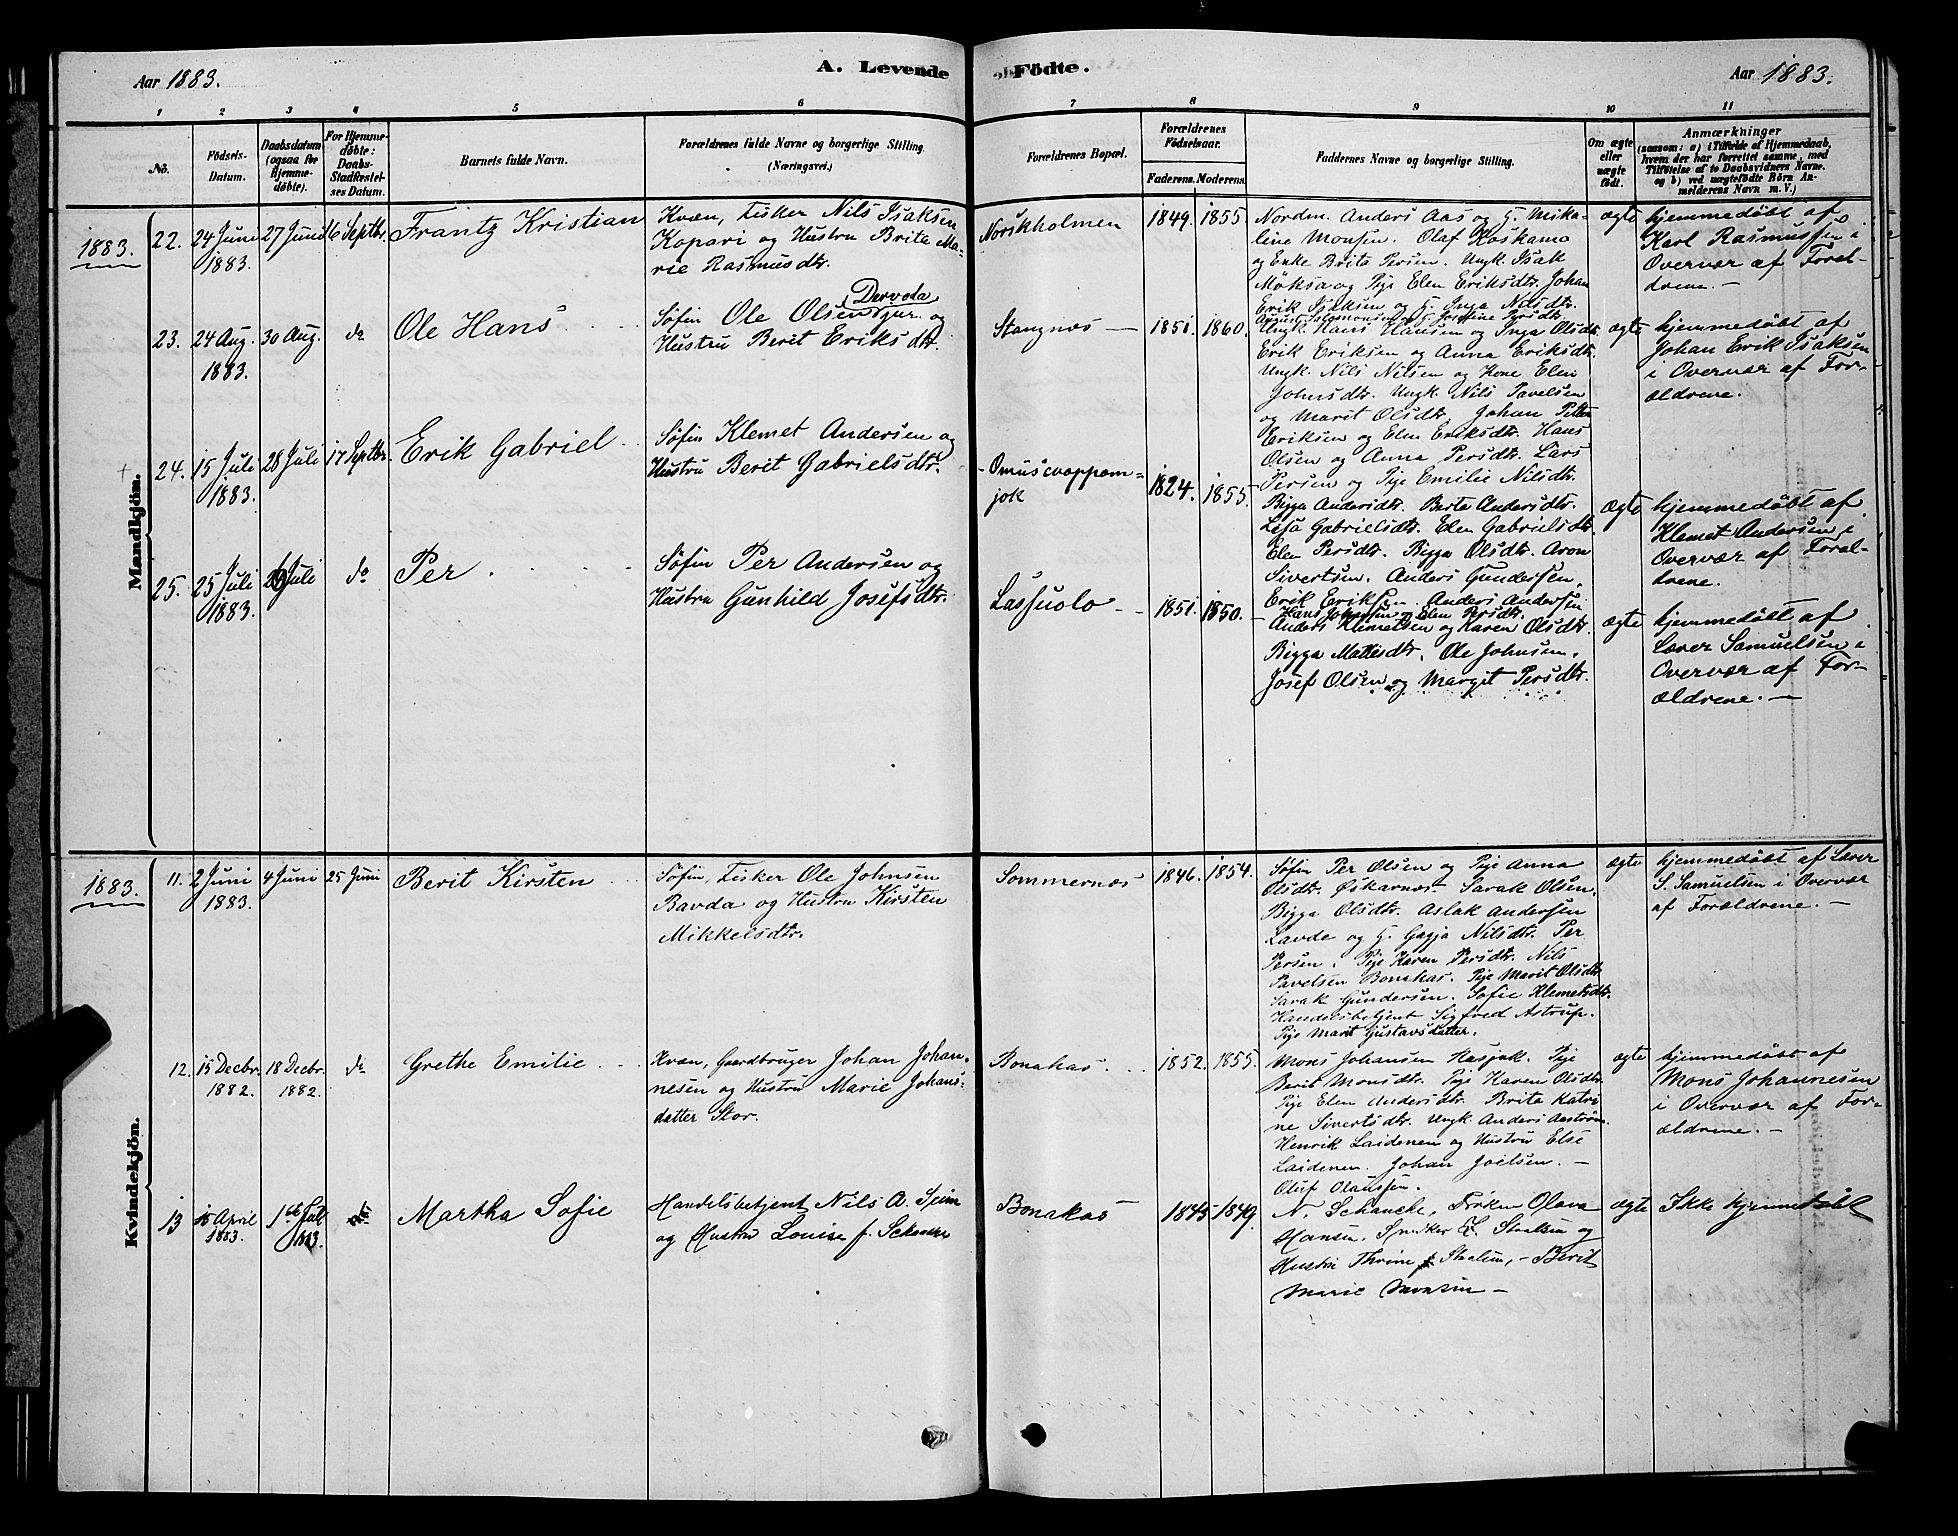 Aar 1883.
A. Levende
Fødte.
Aar 1883.
1 2 3 4 5 6 7 8 9 10 11
No.
Fødsels-
Datum.
Daabsdatum
(ogsaa for
Hjemme-
døbte).
For Hjemme-
døbte:
Daabs-
Stadfæstel-
ses Datum.
Barnets fulde Navn.
Forældrenes fulde Navne og borgerlige Stilling.
(Næringsvei.)
Forældrenes Bopæl.
Forældrenes
Fødselsaar.
Faderens. Moderens.
Faddernes Navne og borgerlige Stilling.
Om ægte
eller
uægte
født.
Anmærkninger
(saasom: a) i Tilfælde af Hjemmedaab,
hvem der har forrettet samme, med
Tilføielse af to Daabsvidners Navne.
og b) ved uægtefødte Børn An-
melderens Navn m. V.)
Mandkjön.
1883.
22.
24 Juni
1883.
27 Juni
16 Septbr.
Frantz Kristian
Kvæn, Fisker Nils Isaksen
Kopari og Hustru Brita Ma-
rie Rasmusdtr.
Norskholmen
1849. 1855
Nordm. Anders Aas og H. Mika-
line Monsen. Olaf Koskamo
og Enke Brita Persen. Ungk. Isak
Möksa og Pige Elen Eriksdtr. Johan
Erik Isaksen og H. Inga Nilsdtr.
August Salomonsen og H. Josefine Persdtr.
ægte
hjemmedøbt af
Karl Rasmussen i
Overvær af Foræl-
drene. —
23.
24 Aug.
1883.
30 Aug.
do
Ole Hans
Søfin Ole Olsen og
Dervoda
Hustru Berit Eriksdtr.
Stangnes —
1851. 1860.
Ungk. Hans Hansen og Inga Olsdtr.
Erik Eriksen og Anna Eriksdtr.
Ungk. Nils Nilsen og Kone Elen
Johnsdtr. Ungk. Nils Pavelsen
og Marit Olsdtr. Johan Petter
Eriksen og Elen Eriksdtr. Hans
Olsen og Anna Persdtr. Lars
Persen og Pige Emilie Nilsdtr.
ægte
hjemmedøbt af
Johan Erik Isaksen
i Overvær af For-
ældrene.
24.
15 Juli
1883.
28 Juli
17 Septbr.
Erik Gabriel
Søfin Klemet Andersen og
Hustru Berit Gabrielsdtr.
Omusvuoppom-
jok
1824. 1855.
Bigga Andersdtr. Berta Andersdtr.
Lisa Gabrielsdtr. Elen Gabrielsdtr.
Elen Persdtr. Bigga Olsdtr. Aron
Sivertsen. Anders Gundersen.
Erik Eriksen. Anders Andersen
ægte
hjemmedøbt af
Klemet Andersen i
Overvær af Foræl-
drene.
25.
25 Juli
1883.
29 Juli
do
Per
Søfin Per Andersen og
Hustru Gunhild Josefsdtr.
Lassuolo
1851. 1850.
Hans Johansen og Elen Persdtr.
Anders Klemetsen og Karen Olsdtr.
Bigga Mattisdtr. Ole Johnsen.
Josef Olsen og Margit Persdtr.
ægte
hjemmedøbt af
Lærer Samuelsen i
Overvær af For-
ældrene. —
Kvindekjön.
1883.
11.
2 Juni
1883.
4 Juni
25 Juni
Berit Kirsten
Søfin, Fisker Ole Johnsen
Bavda og Hustru Kirsten
Mikkelsdtr.
Sommernes
1846. 1854.
Søfin Per Olsen og Pige Anna
Olsdtr. Øskarnes. Sarak Olsen.
Bigga Olsdtr. Aslak Andersen
Lavde og H. Gagja Nilsdtr. Per
Persen. Pige Karen Persdtr. Nils
Pavelsen Bonakas. Pige Marit Olsdtr.
Sarak Gundersen. Sofie Klemetsdtr.
Handelsbetjent Sigfred Astrup.
Pige Marit Gustavsdatter.
ægte
hjemmedøbt af Lærer
S. Samuelsen i Overvær
af Forældrene. —
12.
15 Decbr.
1882.
18 Decbr.
1882.
do
Grethe Emilie
Kvæn, Gaardbruger Johan Johan-
nesen og Hustru Marie Johans-
datter Stor.
Bonakas
1852. 1855.
Mons Johansen Kasjok. Pige
Berit Monsdtr. Pige Karen Olsdtr.
Pige Elen Andersdtr. Brita Katri
ne Sivertsdtr. Ungk. Anders Aaström.
Henrik Laidenen og Hustru Else
Laidenen. Johan Joelsen. —
Oluf Olaussen.
ægte
hjemmedøbt af
Mons Johannesen
i Overvær af For-
ældrene. —
13
15 April
1883.
1ste Juli
1883.
Martha Sofie
Handelsbetjent Nils A.
og Hustru Louise f. Schanche
Bonakas
1845 1849.
N. Schanche, Frøken Olava
Hansen. Snedker Staalsen og
Hustru Thrine Staalsen, – Berit
Marie Monsen —
ægte
Ikke hjemmedøbt